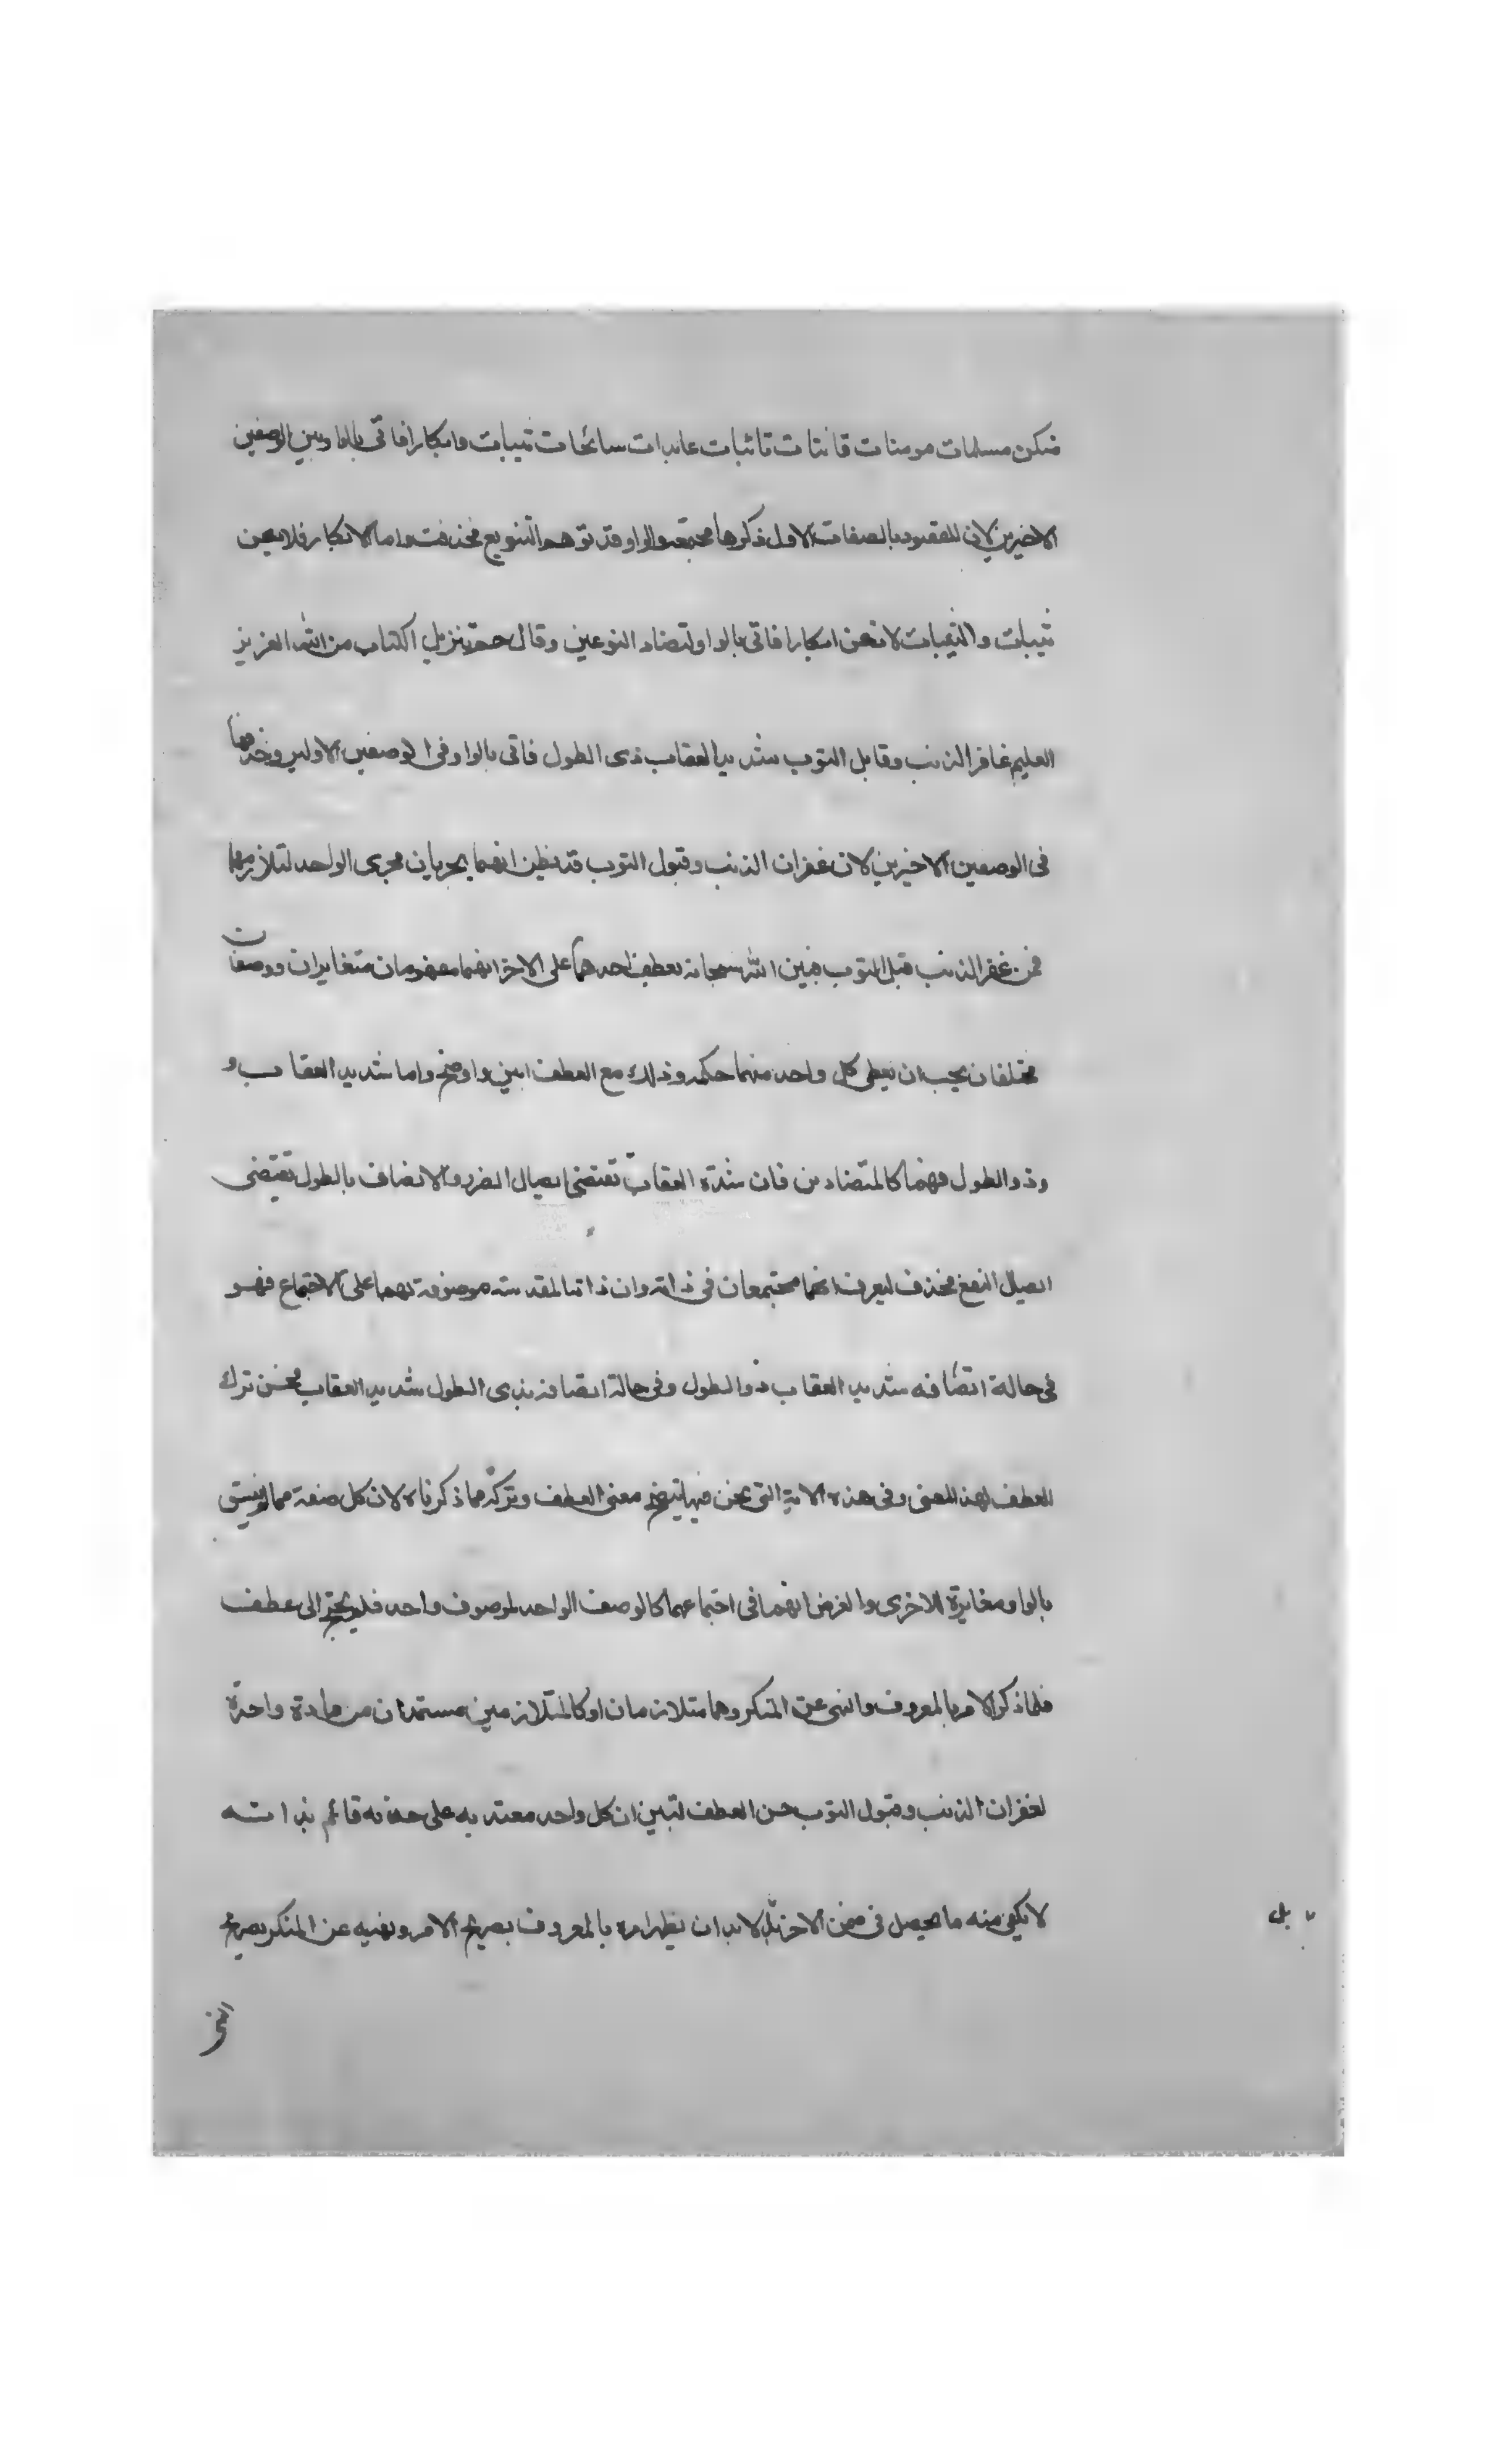 منكن مسلمات مومنات قانتات تائبات عابدات سائحات ثيبات وابكارا فاتى بالواو بين الوصفين
الاخيرين لان المقصود بالصفات الاول ذكرها مجتمعة والواو قد توهم التنويع فحذفت واما الابكار فلا يكن
ثيبات والثيبات لا تكن ابكارا فاتى بالواو لتضاد النوعين وقال حم تنزيل الكتاب من الله العزيز
العليم غافر الذنب وقابل التوب شديد العقاب ذى الطول فاتى بالواو فى الوصفين الاولين وحذفها
فى الوصفين الاخيرين لان غفران الذنب وقبول التوب قد يظن انهما يجريان مجرى الواحد لتلازمهما
فمن غفر الذنب قبل التوب فبين الله سبحانه بعطف احدهما على الاخر انهما مفهومان متغايران ووصفان
مختلفان يجب ان يعطى كل واحد منهما حكمه وذلك مع العطف ابين واوضح واما شديد العقاب و
وذو الطول فهما كالمتضادين فان شدة العقاب تقتضى ايصال الضرر والاتصاف بالطول تقتضى
ايصال النفع فحذف ليعرف انهما مجتمعان فى ذاته وان ذاته المقدسة موصوفة بهما على الاجتماع فهو
فى حالة اتصافه شديد العقاب ذو الطول وفى حالة اتصافه بذى الطول شديد العقاب فحسن ترك
العطف لهذا المعنى وفى هذه الاية التى نحن فيها يتضح معنى العطف وتركه مما ذكرناه لان كل صفة مما لم ينسق
بالواو مغايرة للاخرى والغرض انهما فى اجتماعهما كالوصف الواحد لموصوف واحد فلم يحتج الى عطف
فلما ذكر الامر بالمعروف والنهى عن المنكر وهما متلازمان او كالمتلازمين مستمدان من مادة واحدة
لغفران الذنب وقبول التوب حسن العطف لتبين ان كل واحد معتد به على حدته قائم بذاته
لا يكفى منه ما يحصل فى ضمن الاخر بل لا بد ان يظهر امره بالمعروف بصريح الامر ونهيه عن المنكر بصريح
بل
النهى